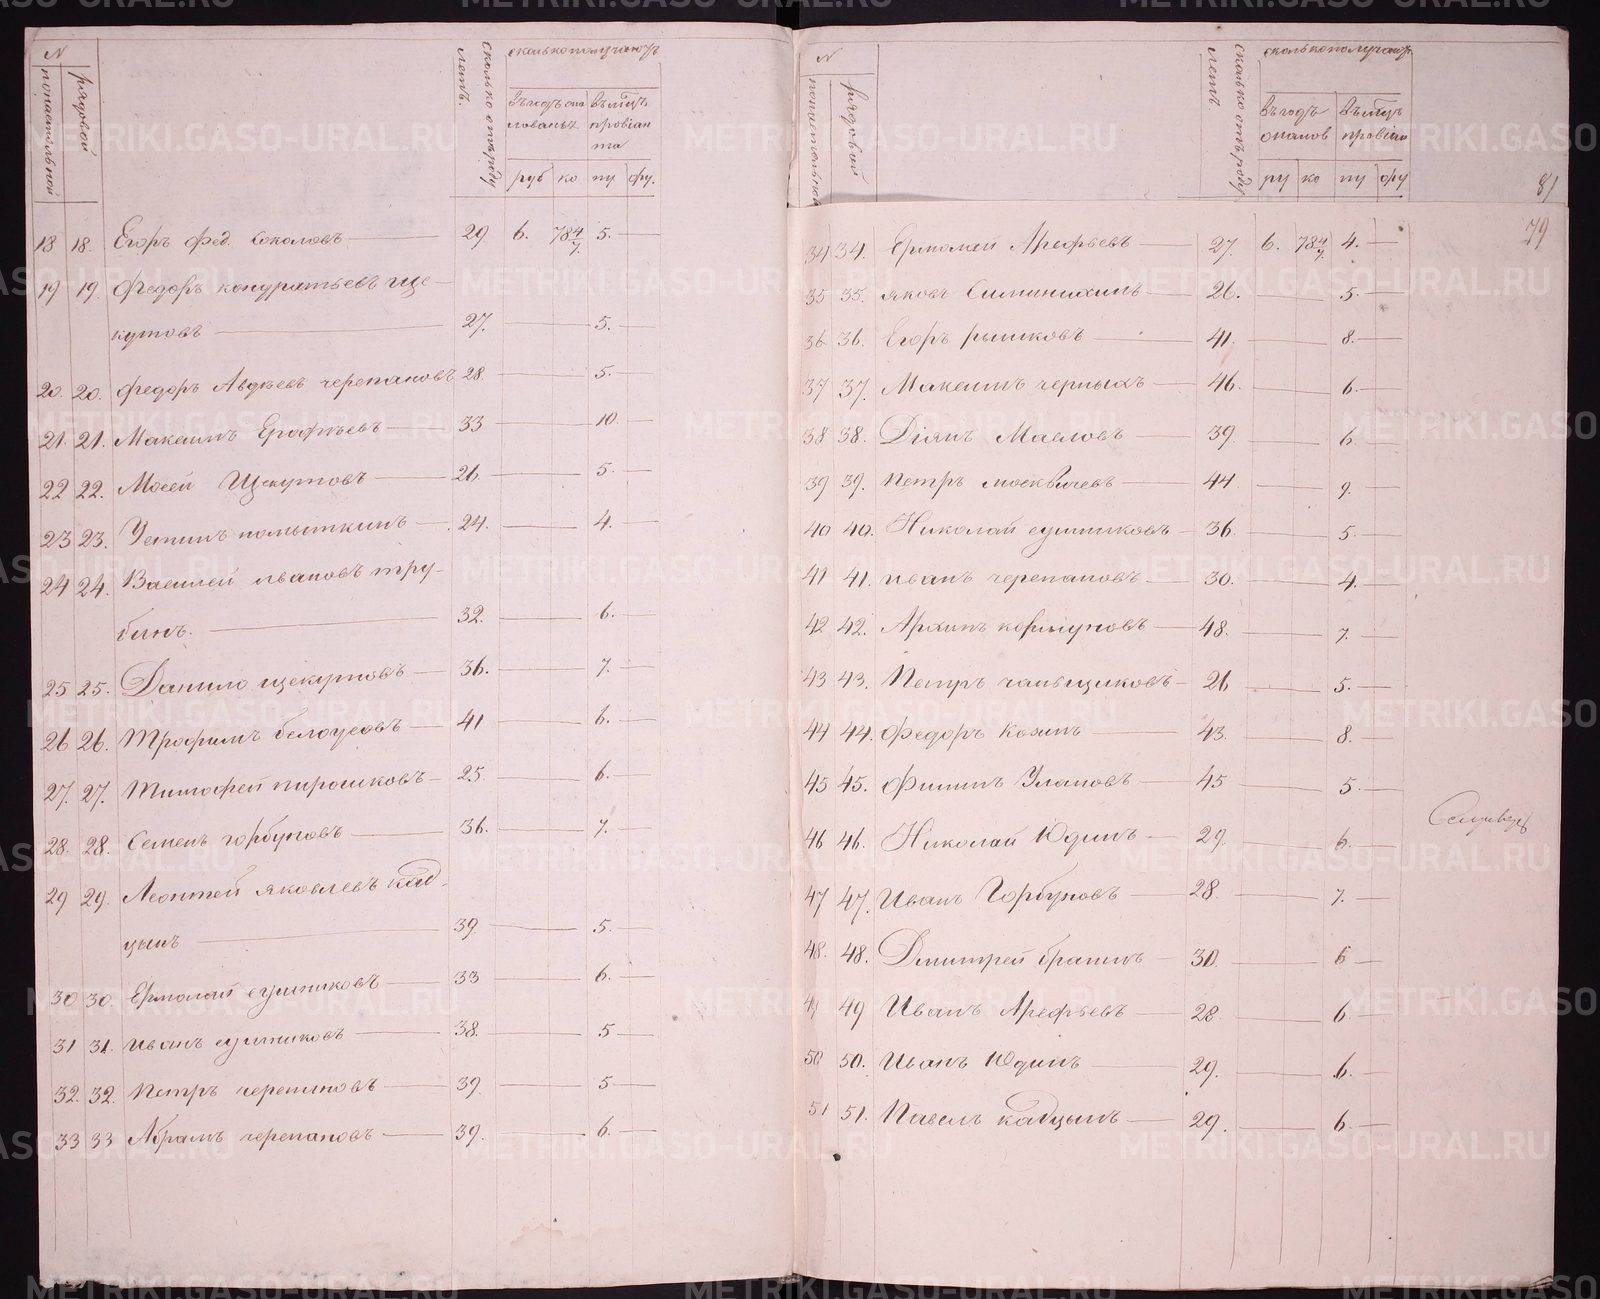 N
попаспольной
рядовой
летъ.
сколько отъ роду
сколько получаютъ
въ годъ жа
лованья
въ мѣсяцъ
провіан
та
руб ко пу фу.
18 18. Егоръ Фед. Соколовъ 29 6. 78 4/7. 5.
19 19. Федоръ кондратьевъ ще-
кутовъ 27. 5.
20. 20. Федоръ Авдѣевъ черепановъ 28. 5.
21. 21. Максимъ Ерофѣевъ 33 10.
22 22. Мосей Щекутовъ 26. 5.
23 23. Устинъ помыткинъ 24. 4.
24 24. Василей ивановъ тру-
бинъ. 32. 6.
25 25. Данило щекутовъ 36. 7.
26 26. Трофимъ белоусовъ 41 6.
27. 27. Тимофей пирошковъ 25. 6.
28. 28. Семенъ горбуновъ 36. 7.
29 29. Леонтей яковлевъ кад-
цынъ 39. 5.
30 30. Ермолай сушниковъ 33 6.
31 31. иванъ сушниковъ 38. 5
32. 32. Петръ черепановъ 39. 5
33 33 Абрамъ черепановъ 39. 6.
N
рядовой
летъ
сколько отъ роду
сколько получаютъ
въ годъ
въ мѣсяцъ
провіан
ру ко пу фу
81
79
34 34. Ермолай Арефьевъ 27. 6. 78 4/7. 4.
35 35. яковъ 26. 5.
36 36. Егоръ рышковъ 41. 8.
37 37. Максимъ черныхъ 46. 6.
38 38. Діянъ Масловъ 39. 6.
39 39. Петръ москвичевъ 44. 9.
40 40. Николай сушниковъ 36. 5.
41 41. иванъ черепановъ 30. 4.
42 42. Архипъ коршуновъ 48. 7.
43 43. Петръ чанвщиковъ 26 5.
44 44. Федоръ Козинъ 43. 8.
45 45. Филипъ Улановъ 45 5.
46 46. Николай Юдинъ 29. 6.
47 47. Иванъ Горбуновъ 28. 7.
48. 48. Дмитрей брагинъ 30. 6
49 49 Иванъ Арефьевъ 28. 6.
50 50. Иванъ Юдинъ 29. 6.
51 51. Павелъ кадцынъ 29. 6.
METRIKI.GASO-URAL.RU